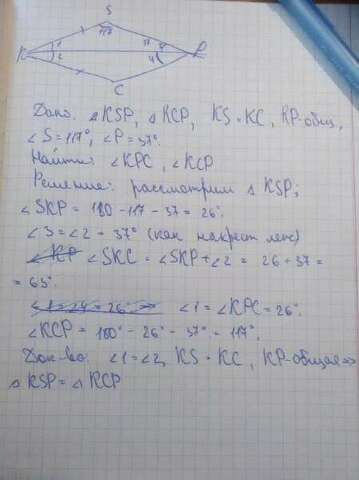 S
117
K 1 2 37 4 P
C
Дано: △KSP, △KCP, KS = KC, KP-общ,
∠S = 117°, ∠P = 37°.
Найти: ∠KPC, ∠KCP
Решение: рассмотрим △ KSP;
∠SKP = 180 - 117 - 37 = 26°.
∠3 = ∠2 = 37° (как накрест леж)
∠KP ∠SKC = ∠SKP + ∠2 = 26 + 37 =
= 63°.
∠1 = ∠4 = 26° ∠1 = ∠KPC = 26°.
∠KCP = 180° - 26° - 37° = 117°;
Док-во: ∠1 = ∠2, KS = KC, KP-общая =>
△ KSP = △ KCP